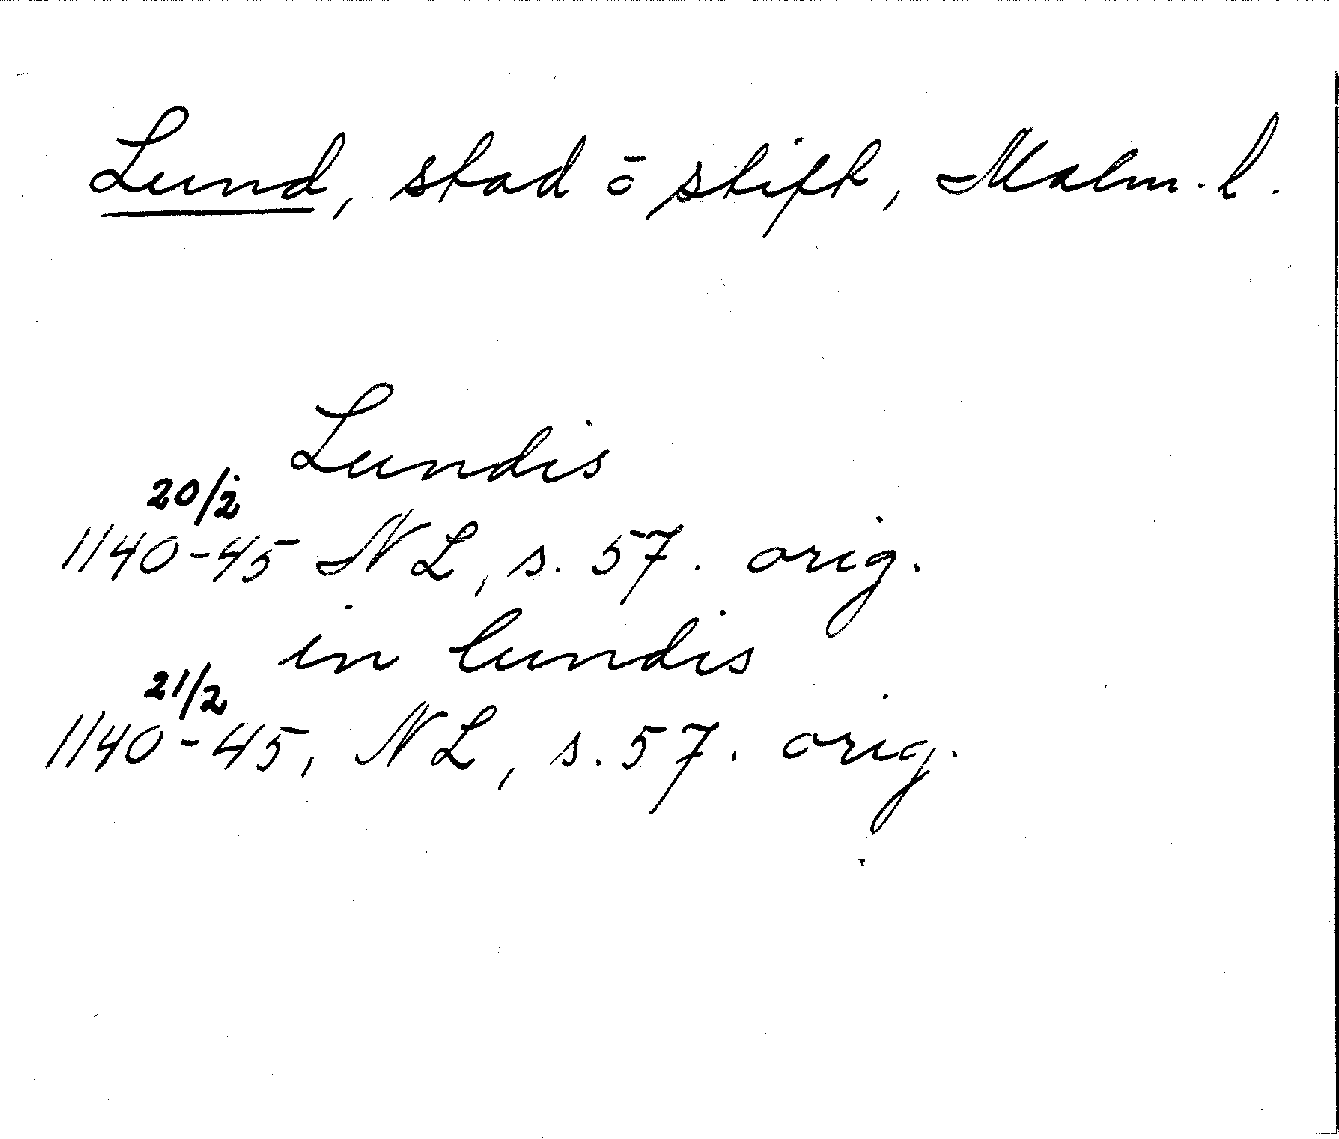 Lund, stad ō stift, Malm. l.
Lundis
20/2
1140-45 NL, s. 57. orig.
in lundis
21/2
1140-45, NL, s. 57. orig.